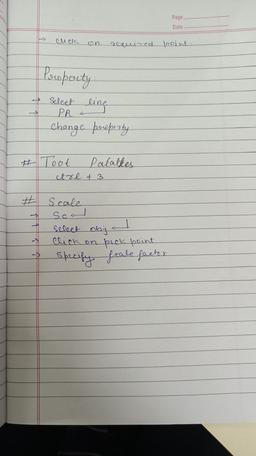 Page
Date
→ click on required point
Property
→ Select line
→ PR ↵
change property
# Tool Palattes
ctrl + 3
# Scale
→ Sc ↵
→ Select obj ↵
→ Click on pick point
→ Specify scale factor